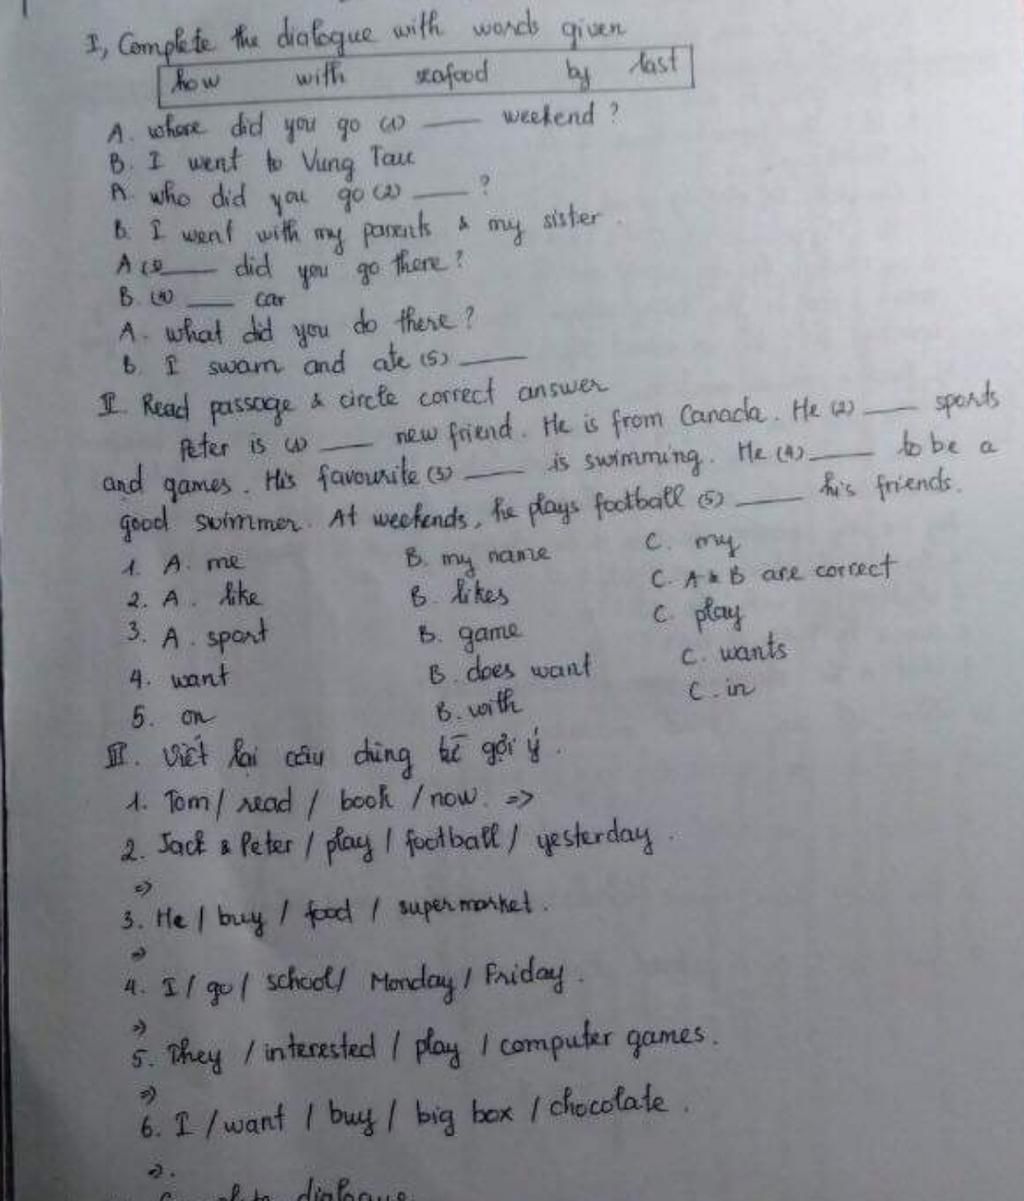 I, Complete the dialogue with words given
how with seafood by last
A. where did you go (1) ___ weekend?
B. I went to Vung Tau
A. who did you go (2) ___?
B. I went with my parents & my sister.
A (3) ___ did you go there?
B. (4) ___ car
A. what did you do there?
B. I swam and ate (5) ___
II. Read passage & circle correct answer
Peter is (1) ___ new friend. He is from Canada. He (2) ___ sports
and games. His favourite (3) ___ is swimming. He (4) ___ to be a
good swimmer. At weekends, he plays football (5) ___ his friends.
1. A. me B. my name C. my
2. A. like B. likes C. A & B are correct
3. A. sport B. game C. play
4. want B. does want C. wants
5. on B. with C. in
III. Viết lại câu dùng từ gợi ý.
1. Tom / read / book / now. =>
2. Jack & Peter / play / football / yesterday.
=>
3. He / buy / food / supermarket.
=>
4. I / go / school / Monday / Friday.
=>
5. They / interested / play / computer games.
=>
6. I / want / buy / big box / chocolate.
=>.
Complete dialogue